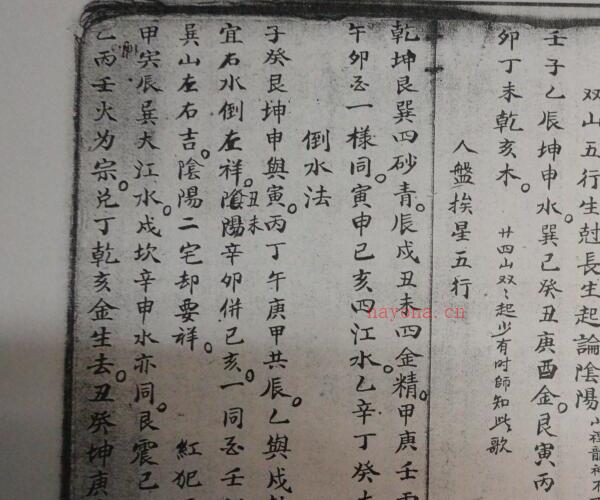 双山五行生尅長生起論陰陽山裡龍神不
壬子乙辰坤申水。巽巳癸丑庚酉金。艮寅丙
卯丁未乾亥木。廿四山双々起少有时師知此歌
人盤挨星五行
乾坤艮巽四砂青。辰戌丑未四金精。甲庚壬
午卯酉一樣同。寅申巳亥四江水。乙辛丁癸
倒水法
子癸艮坤申與寅。丙丁午庚甲共辰。乙與戌
丑未
宜右水倒左祥。陰陽辛卯併巳亥。一同酉壬
巽山左右吉。陰陽二宅却要祥。紅犯
甲寅辰巽大江水。戌坎辛申水亦同。艮震巳
乙丙壬火为宗。兌丁乾亥金生去。丑癸坤庚
nayona.cn